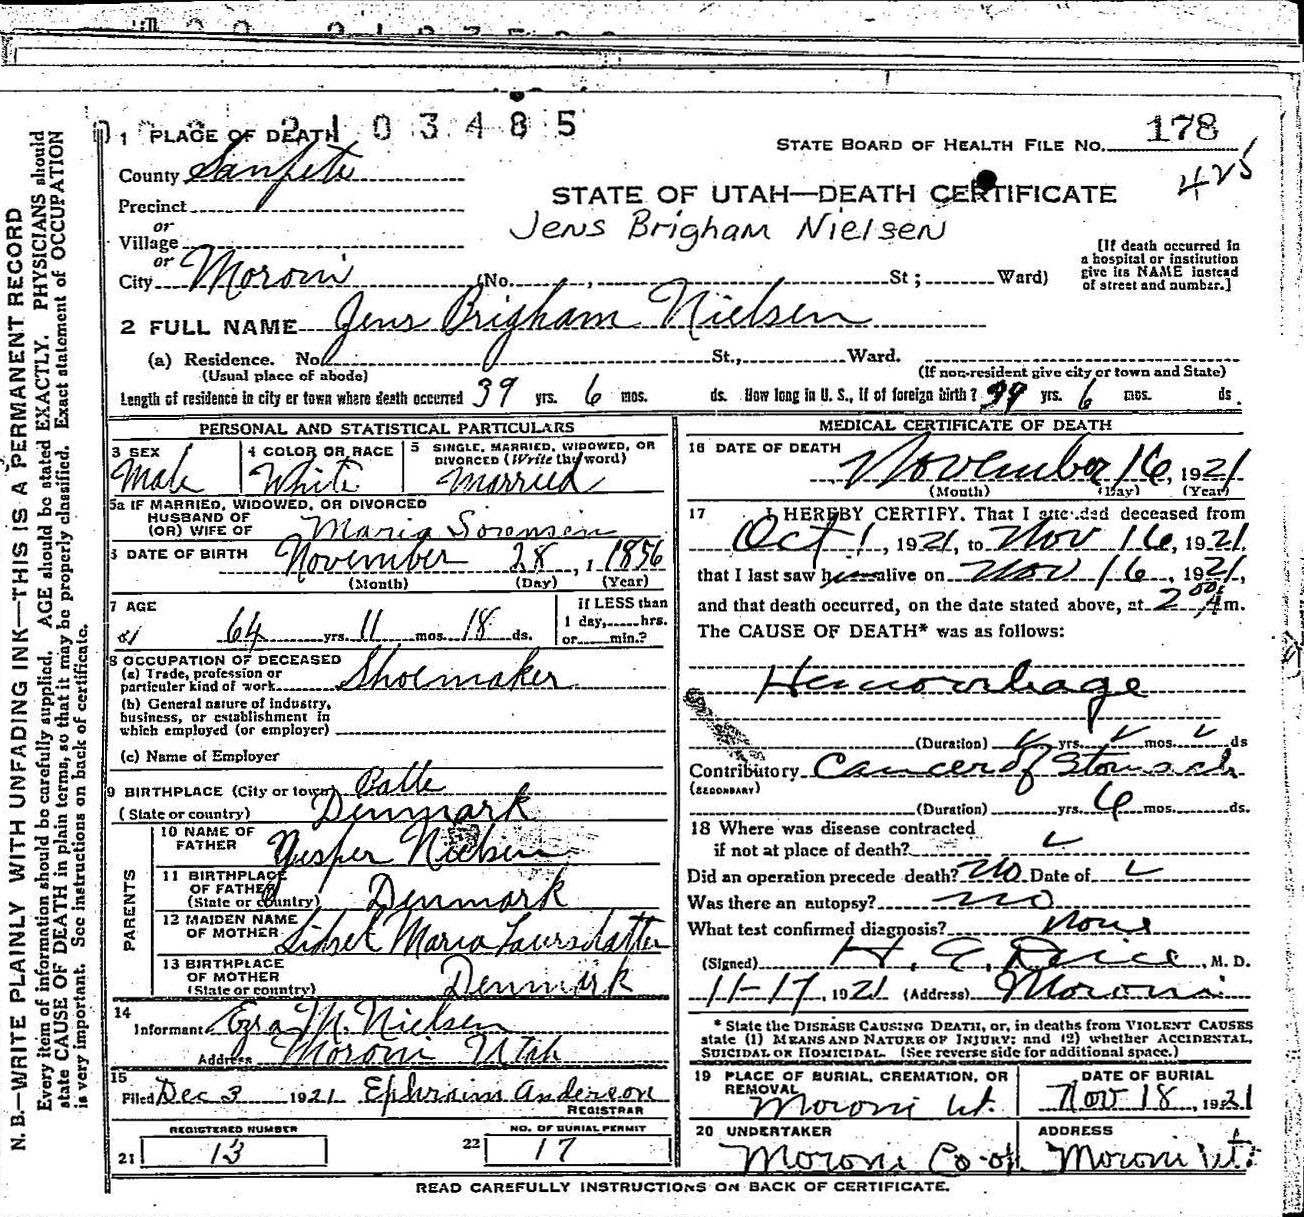 2103485
1 PLACE OF DEATH
STATE BOARD OF HEALTH FILE NO. 178
County Sanpete
425
STATE OF UTAH—DEATH CERTIFICATE
Precinct
Jens Brigham Nielsen
or
Village
or
City Moroni (No. , St ; Ward)
[If death occurred in
a hospital or institution
give its NAME instead
of street and number.]
2 FULL NAME Jens Brigham Nielsen
(a) Residence. No. St., Ward.
(Usual place of abode) (If non-resident give city or town and State)
Length of residence in city or town where death occurred 39 yrs. 6 mos. ds. How long in U. S., if of foreign birth? 39 yrs. 6 mos. ds.
PERSONAL AND STATISTICAL PARTICULARS
3 SEX
Male
4 COLOR OR RACE
White
5 SINGLE, MARRIED, WIDOWED, OR
DIVORCED (Write the word)
Married
5a IF MARRIED, WIDOWED, OR DIVORCED
HUSBAND OF
(OR) WIFE OF Maria Sorensen
6 DATE OF BIRTH November 28, 1856
(Month) (Day) (Year)
7 AGE
64 yrs. 11 mos. 18 ds.
If LESS than
1 day, hrs.
or min.?
8 OCCUPATION OF DECEASED
(a) Trade, profession or
particular kind of work Shoemaker
(b) General nature of industry,
business, or establishment in
which employed (or employer)
(c) Name of Employer
9 BIRTHPLACE (City or town)
(State or country) Denmark
PARENTS
10 NAME OF
FATHER Yesper Nielsen
11 BIRTHPLACE
OF FATHER
(State or country) Denmark
12 MAIDEN NAME
OF MOTHER Maria Laursdatter
13 BIRTHPLACE
OF MOTHER
(State or country) Denmark
14
Informant Ezra M. Nielsen
Address Moroni Utah
15
Filed Dec 3 1921 Ephraim Anderson
REGISTRAR
REGISTERED NUMBER
21 13
NO. OF BURIAL PERMIT
22 17
MEDICAL CERTIFICATE OF DEATH
16 DATE OF DEATH
November 16, 1921
(Month) (Day) (Year)
17 I HEREBY CERTIFY, That I attended deceased from
Oct 1, 1921, to Nov 16, 1921,
that I last saw him alive on Nov 16, 1921,
and that death occurred, on the date stated above, at 2 00 A m.
The CAUSE OF DEATH* was as follows:
Hemorrhage
(Duration) yrs. mos. ds
Contributory Cancer of Stomach
(SECONDARY)
(Duration) yrs. 6 mos. ds.
18 Where was disease contracted
if not at place of death?
Did an operation precede death? No Date of
Was there an autopsy? no
What test confirmed diagnosis? None
(Signed) H. C. , M. D.
11-17, 1921 (Address) Moroni
* State the DISEASE CAUSING DEATH, or, in deaths from VIOLENT CAUSES
state (1) MEANS AND NATURE OF INJURY; and (2) whether ACCIDENTAL,
SUICIDAL OR HOMICIDAL. (See reverse side for additional space.)
19 PLACE OF BURIAL, CREMATION, OR
REMOVAL
Moroni Ut.
DATE OF BURIAL
Nov 18, 1921
20 UNDERTAKER
Moroni Co-op.
ADDRESS
Moroni Ut.
READ CAREFULLY INSTRUCTIONS ON BACK OF CERTIFICATE.
N. B.—WRITE PLAINLY WITH UNFADING INK—THIS IS A PERMANENT RECORD
Every item of information should be carefully supplied. AGE should be stated EXACTLY. PHYSICIANS should
state CAUSE OF DEATH in plain terms, so that it may be properly classified. Exact statement of OCCUPATION
is very important. See instructions on back of certificate.